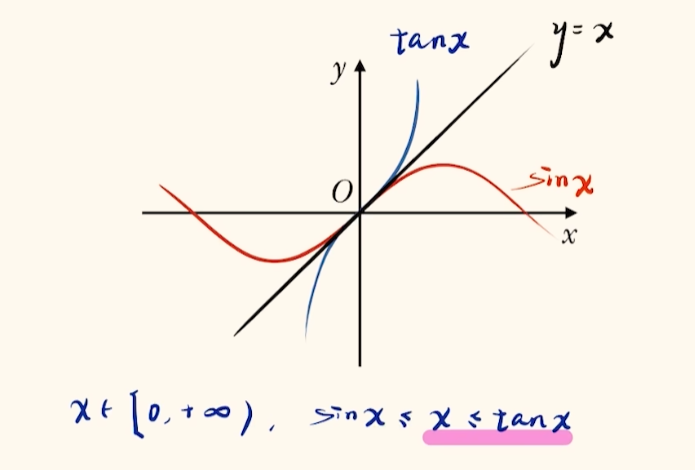 tanx
y=x
y
O
sinx
x
x∈[0,+∞), sinx≤x≤tanx